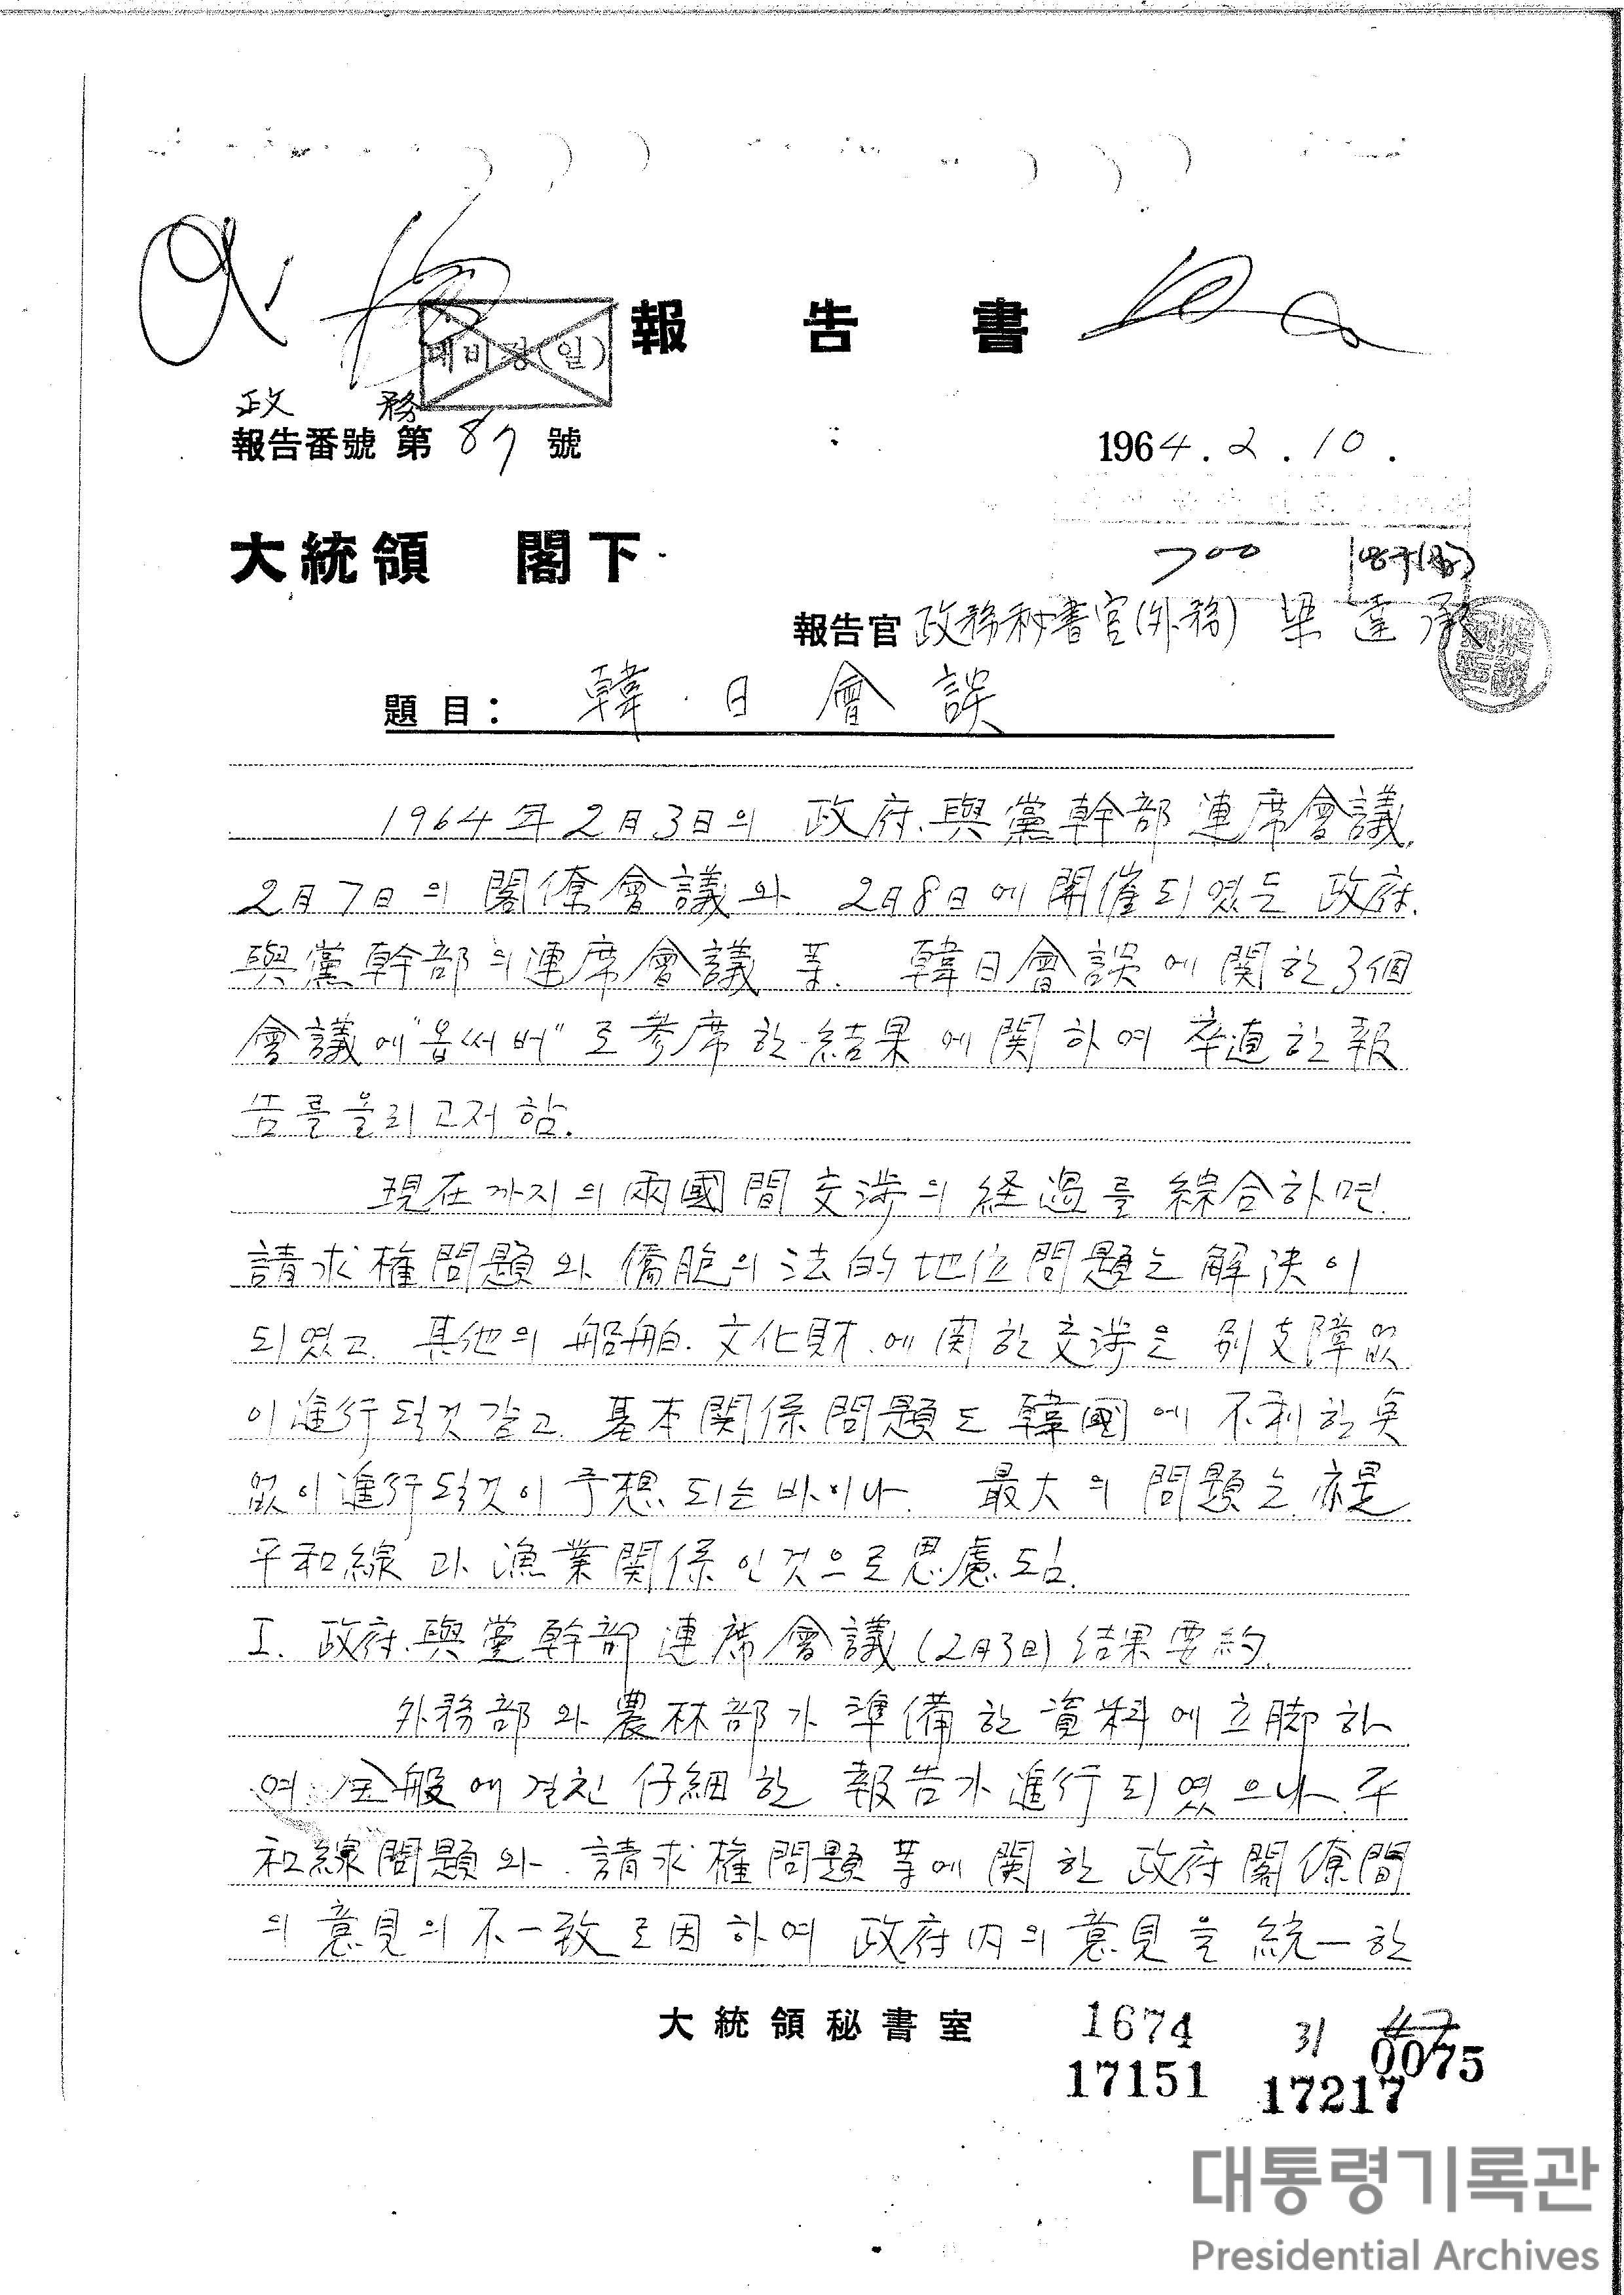 報告書
대비공(일)
政務
報告番號 第 87 號
1964.2.10.
大統領 閣下
700
報告官 政務秘書官(外務) 梁達承
題目: 韓·日會談
1964年2月3日의 政府.與黨幹部連席會議,
2月7日의 閣僚會議와 2月8日에 開催되였든 政府.
與黨幹部의連席會議 等. 韓日會談에 関한 3個
會議에"옵써버"로参席한 結果에関하여 卒直한報
告를올리고저함.
現在까지의 兩國間交渉의 経過를 綜合하면
請求権問題와 僑胞의法的地位問題는 解決이
되였고. 其他의 船舶.文化財.에関한交渉은 別支障없
이進行될것같고. 基本関係問題도 韓國에 不利한点
없이進行될것이予想되는바이나. 最大의 問題는亦是
平和線과 漁業関係인것으로思慮됨.
I. 政府.與黨幹部連席會議(2月3日)結果要約.
外務部와農林部가 準備한 資料에立脚하
여 全般에걸친 仔細한 報告가進行되였으나 平
和線問題와. 請求権問題等에関한 政府閣僚間
의意見의不一致로因하여 政府内의意見을統一한
大統領秘書室
1674
31
47
0075
17151
17217
대통령기록관
Presidential Archives